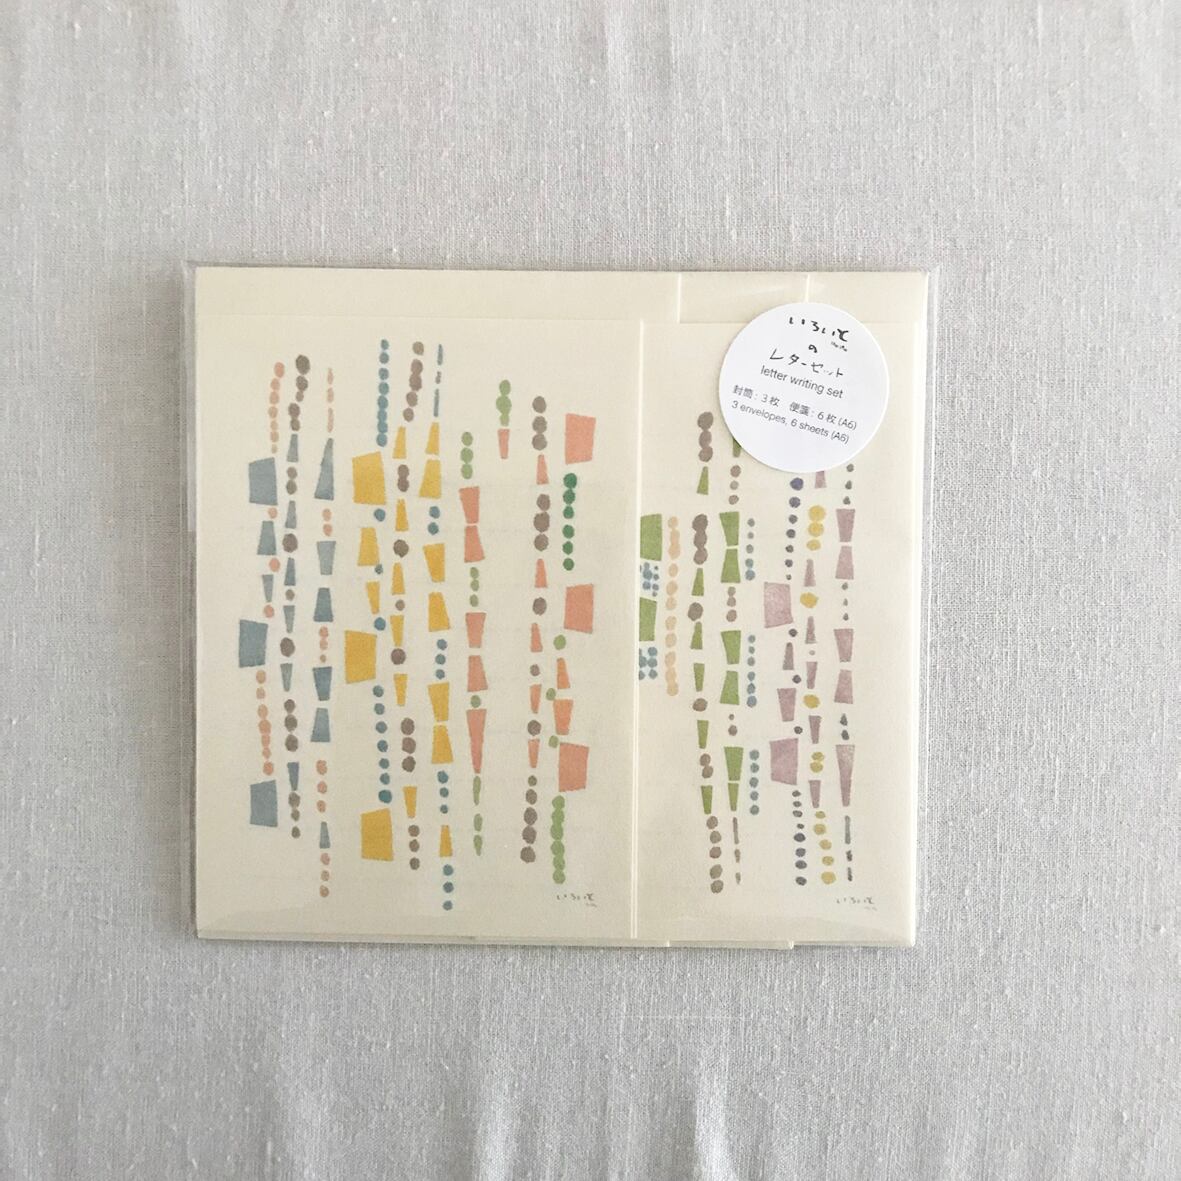 いろいと
の
レターセット
letter writing set
封筒：3枚　便箋：6枚(A6)
3 envelopes, 6 sheets (A6)
いろいと
いろいと